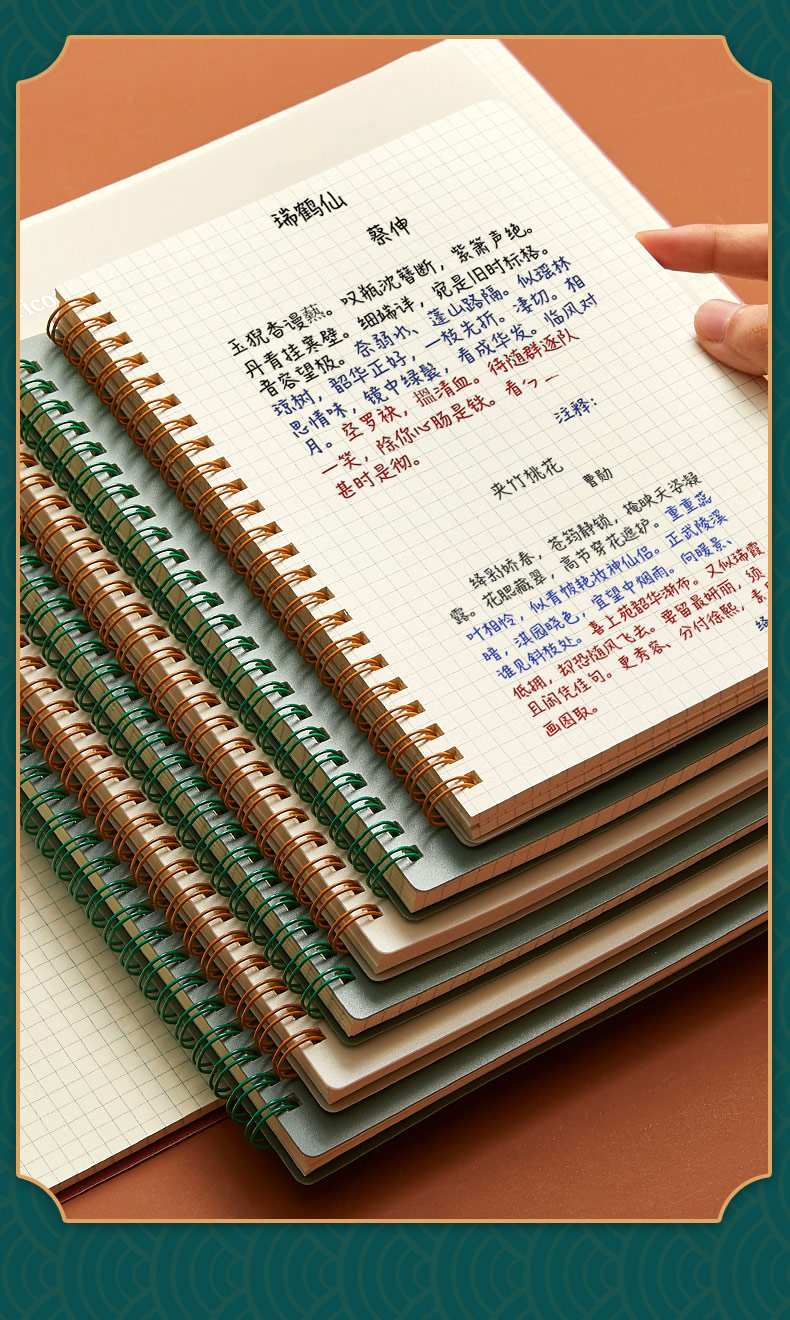 瑞鹤仙
蔡伸
玉猊香谩爇。叹瓶沈簪断，紫箫声绝。
丹青挂寒壁。细端详，宛是旧时标格。
音容望极。奈弱水、蓬山路隔。似瑶林
琼树，韶华正好，一枝先折。凄切。相
思情味，镜中绿鬓，看成华发。临风对
月。空罗袂，揾清血。待随群逐队
一笑，除你心肠是铁。看ㄅ一
甚时是彻。
注释：
夹竹桃花
曹勋
绛彩娇春，苍筠静锁，掩映夭姿凝
露。花腮藏翠，高节穿花遮护。重重蕊
叶相怜，似青帔艳妆神仙侣。正武陵溪
暗，淇园晓色，宜望中烟雨。向暖景、
谁见斜枝处。喜上苑韶华渐布。又似瑞霞
低拥，却恐随风飞去。要留最妍丽，须
且闲凭佳句。更秀容、分付徐熙，素
画图取。
ico